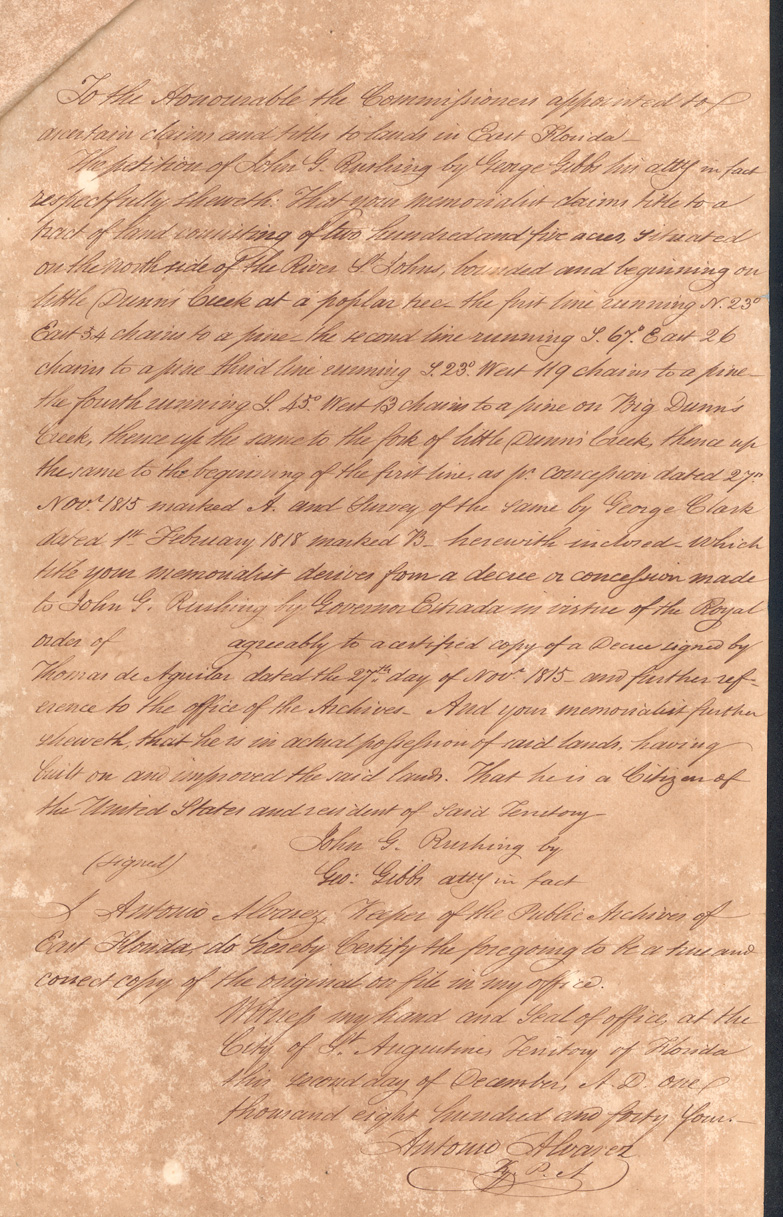 To the Honourable the Commissioners appointed to
ascertain claims and titles to lands in East Florida—
The petition of John G. Rushing by George Gibbs his atty in fact
respectfully sheweth: That your memorialist claims title to a
tract of land consisting of two hundred and five acres, situated
on the north side of the River St. Johns, bounded and beginning on
little Dunn's Creek at a poplar tree— the first line running N. 23°
East 34 chains to a pine— the second line running S. 67° East 26
chains to a pine third line running S. 23° West 119 chains to a pine—
the fourth running S. 45° West 13 chains to a pine on Big Dunn's
Creek, thence up the same to the fork of little Dunn's Creek, thence up
the same to the beginning of the first line, as pr. concession dated 27th
Novr. 1815 marked A. and Survey of the same by George Clark
dated 1st February 1818 marked B— herewith inclosed— Which
title your memorialist derives from a decree or concession made
to John G. Rushing by Governor Estrada in virtue of the Royal
order of agreeably to a certified copy of a Decree signed by
Thomas de Aguilar dated the 27th day of Novr. 1815— and further ref-
erence to the office of the Archives— And your memorialist further
sheweth, that he is in actual possession of said lands, having
built on and improved the said lands. That he is a Citizen of
the United States and resident of Said Territory
John G. Rushing by
(signed)
Geo: Gibbs atty in fact
I Antonio Alvarez, Keeper of the Public Archives of
East Florida, do hereby Certify the foregoing to be a true and
correct copy of the original on file in my office.
Witness my hand and Seal of office, at the
City of St. Augustine, Territory of Florida
this second day of December, A. D. one
thousand eight hundred and forty four.—
Antonio Alvarez
K. P. A